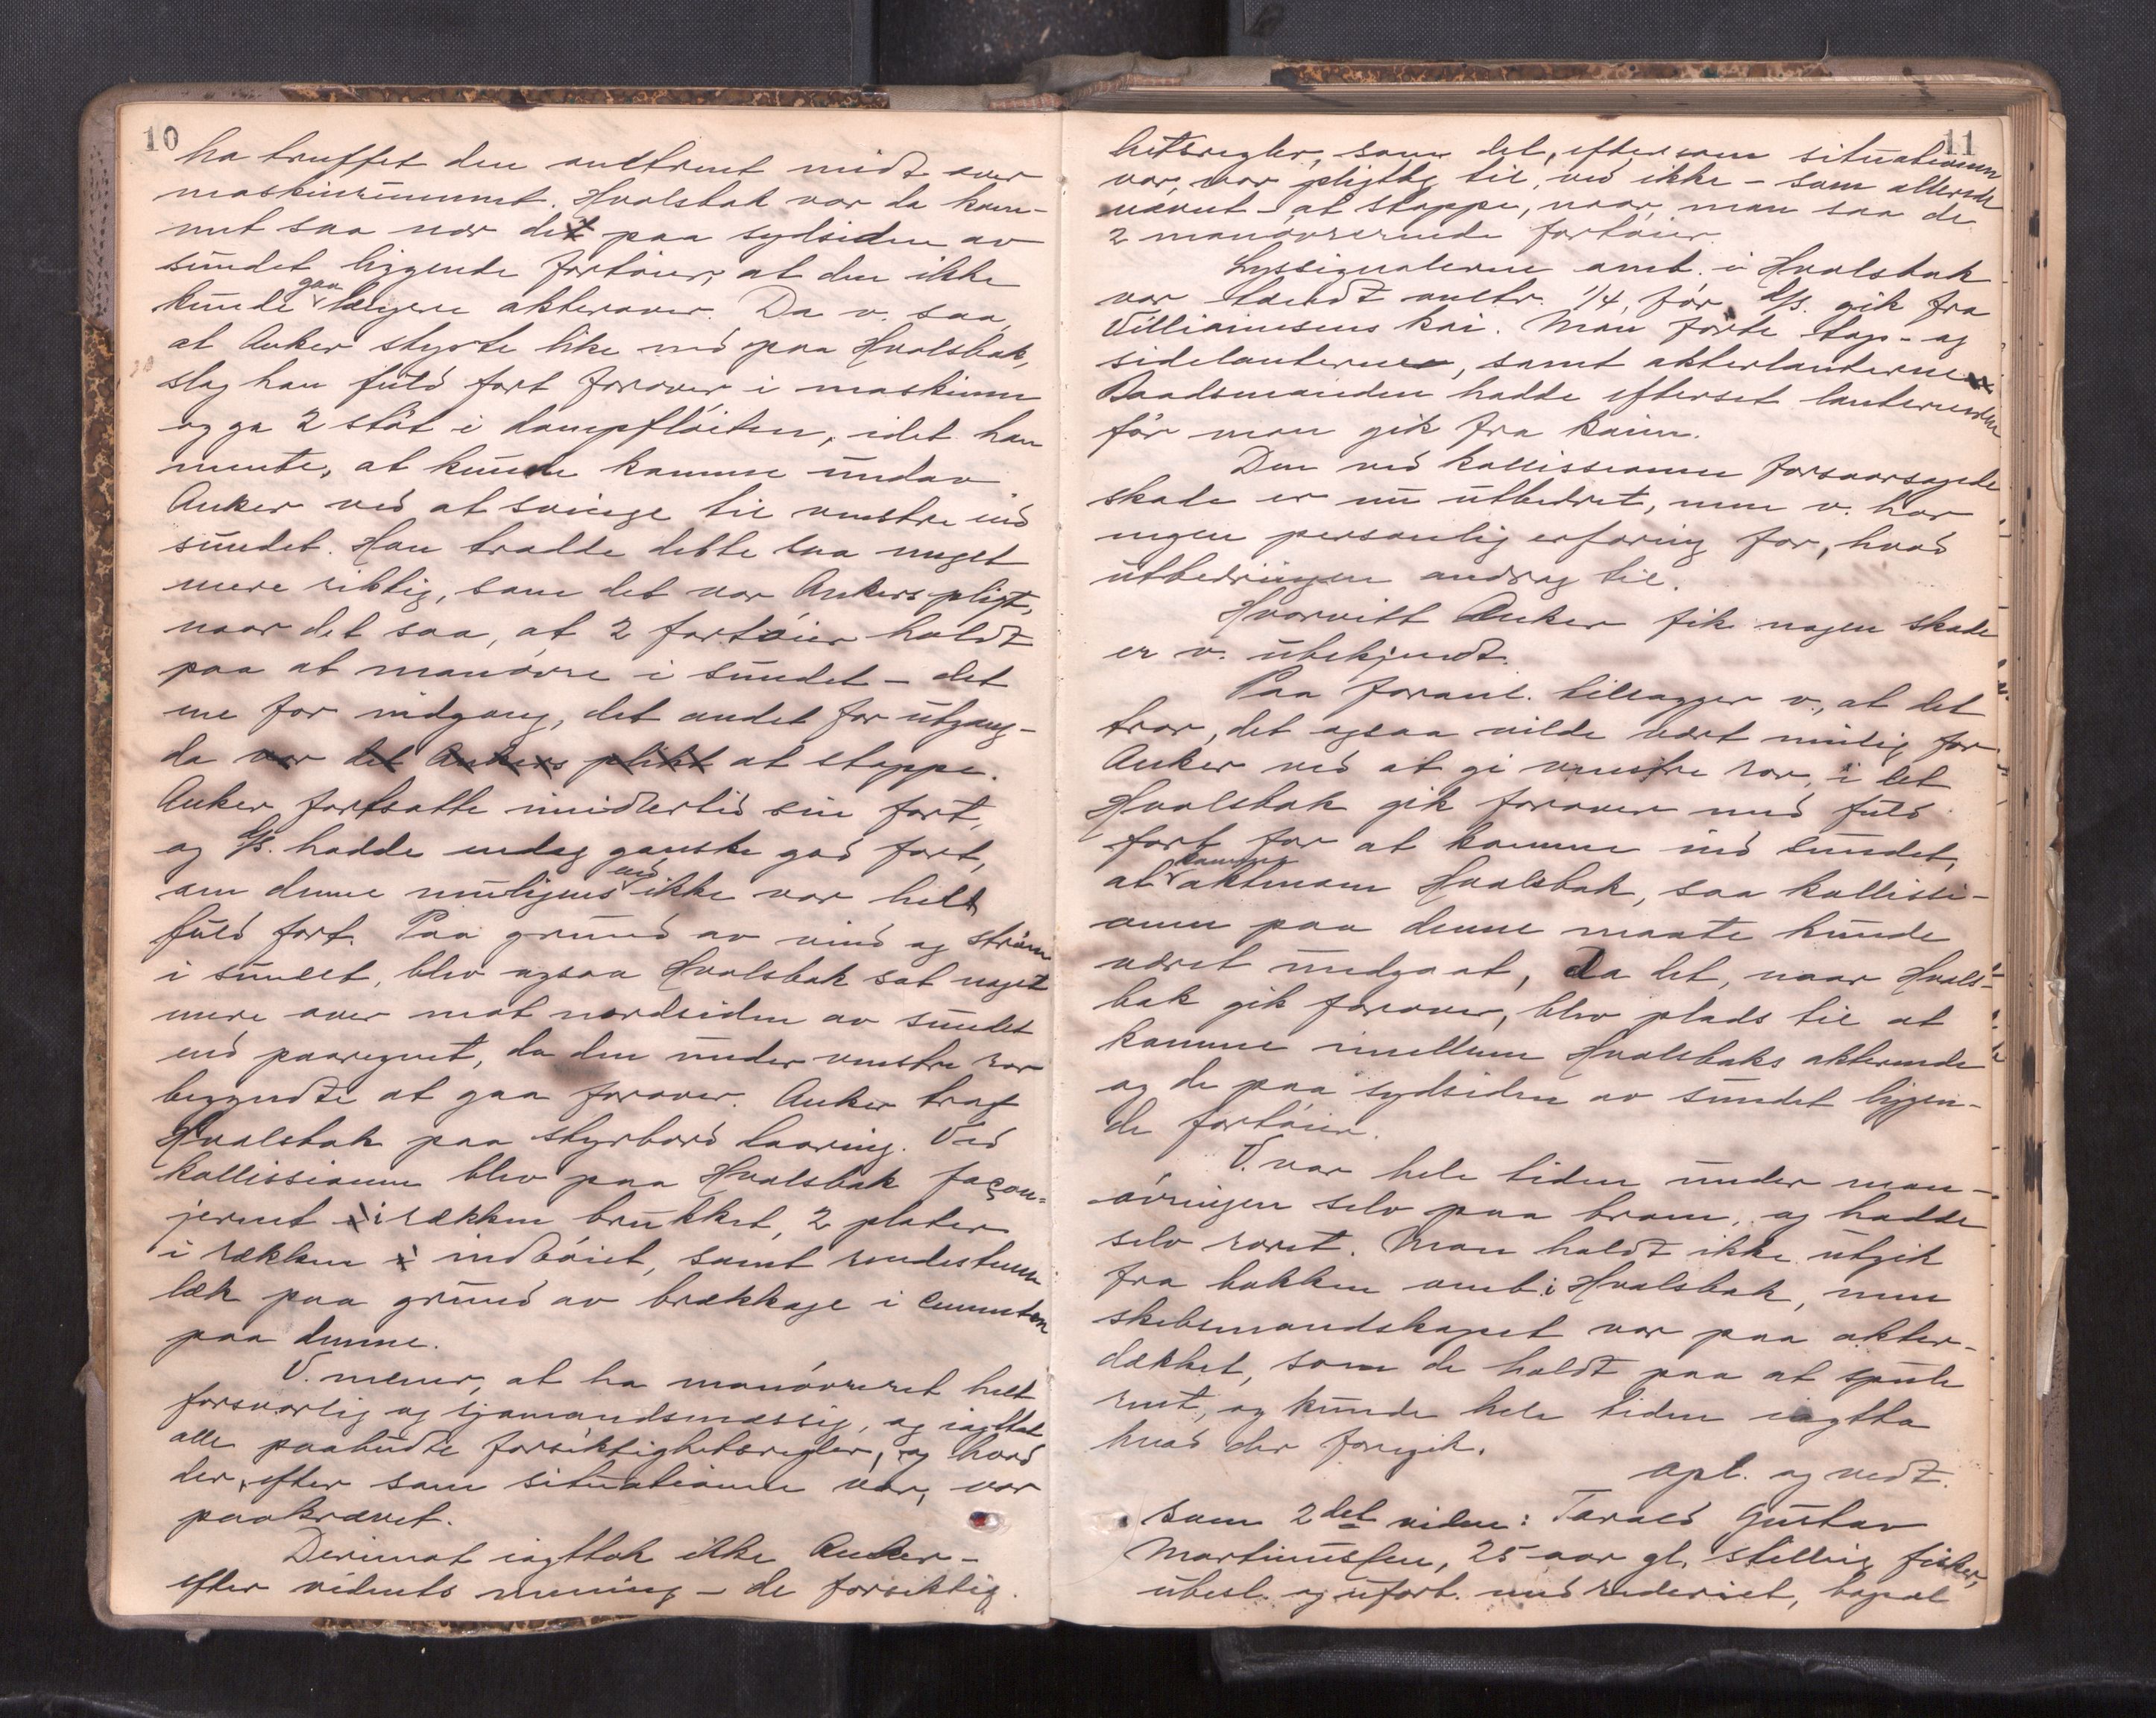 10
ha truffet den anstrent midt over
maskinrummet. Hvalsbak var da kom-
met saa nær det paa sydsiden av
sundet liggende fartöier, at den ikke
kunde gaa længere akterover. Da v. saa,
at Anker styrte like ned paa Hvalsbak,
slog han fuld fart forover i maskinen
og ga 2 stöt i dampflöiten, idet han
mente, at kunde komme undav
Anker ved at svinge til venstre ind
sundet. Han trodde dette saa meget
mere riktig, som det var Ankers pligt,
naar det saa, at 2 fartöier holdt
paa at manövre i sundet – det
ene for indgang, det andet for utgang –
da var det Ankers plikt at stoppe.
Anker fortsatte imidlertid sin fart,
og D/S. hadde endog ganske god fart,
om denne muligens end ikke var helt
fuld fart. Paa grund av vind og ström
i sundet, blev ogsaa Hvalsbak sat noget
mere over mot nordsiden av sundet
end paaregnet, da den under venstre ror
begyndte at gaa forover. Anker traf
Hvalsbak paa styrbord laaring. Ved
kollissionen blev paa Hvalsbak façon-
jernet i rækken brukket, 2 plater
i rækken indböiet, samt rendestenen
læk paa grund av brækkage i cementen
paa denne.
V. mener, at ha manövreret helt
forsvarlig og sjømandsmæssig, og iagttat
alle paabudte forsiktighetsregler, og hvad
der, efter som situationen var, var
paakrævet.
Derimot iagttok ikke Anker –
efter vidnets mening – de forsiktig-
11
hetsregler, som det, eftersom situationen
var, var pligtig til, ved ikke – som allerede
nævnt – at stoppe, naar man saa de
2 manövrerende fartöier.
Lyssignalerne omb. i Hvalsbak
var tændt omtr. 1/4, för D/S. gik fra
Villiamsens kai. Man förte top- og
sidelanterner, samt akterlanterne
Baadsmanden hadde efterset lanternerne
för man gik fra kaien.
Den ved kollissionen forvoarsagede
skade er nu utbedret, men v. har
ingen personlig erfaring for, hvad
utbedringen androg til.
Hvorvitt Anker fik nogen skade
er v. ubekjendt.
Paa foranl. tillægger v., at det
tror, det ogsaa vilde vært mulig for
Anker ved at gi venstre ror, i det
Hvalsbak gik forover med fuld
fart for at komme ind sundet,
at komme aktenom Hvalsbak, saa kollissi-
onen paa denne maate kunde
været undgaat, da det, naar Hvals-
bak gik forover, blev plads til at
komme imellem Hvalsbaks akterende
og de paa sydsiden av sundet liggen-
de fartöier.
V. var hele tiden under man-
övringen selv paa broen, og hadde
selv roret. Man holdt ikke utgik
fra bakken omb. i Hvalsbak, men
skibsmandskapet var paa akter-
dækket, som de holdt paa at spule
rent, og kunde hele tiden iagtta
hvad der foregik.
Opl. og vedt.
Som 2det vidne: Tarald Gustav
Martinussen, 25 aar gl. stilling fisker,
ubesl. og ufort. med rederiet, bopæl